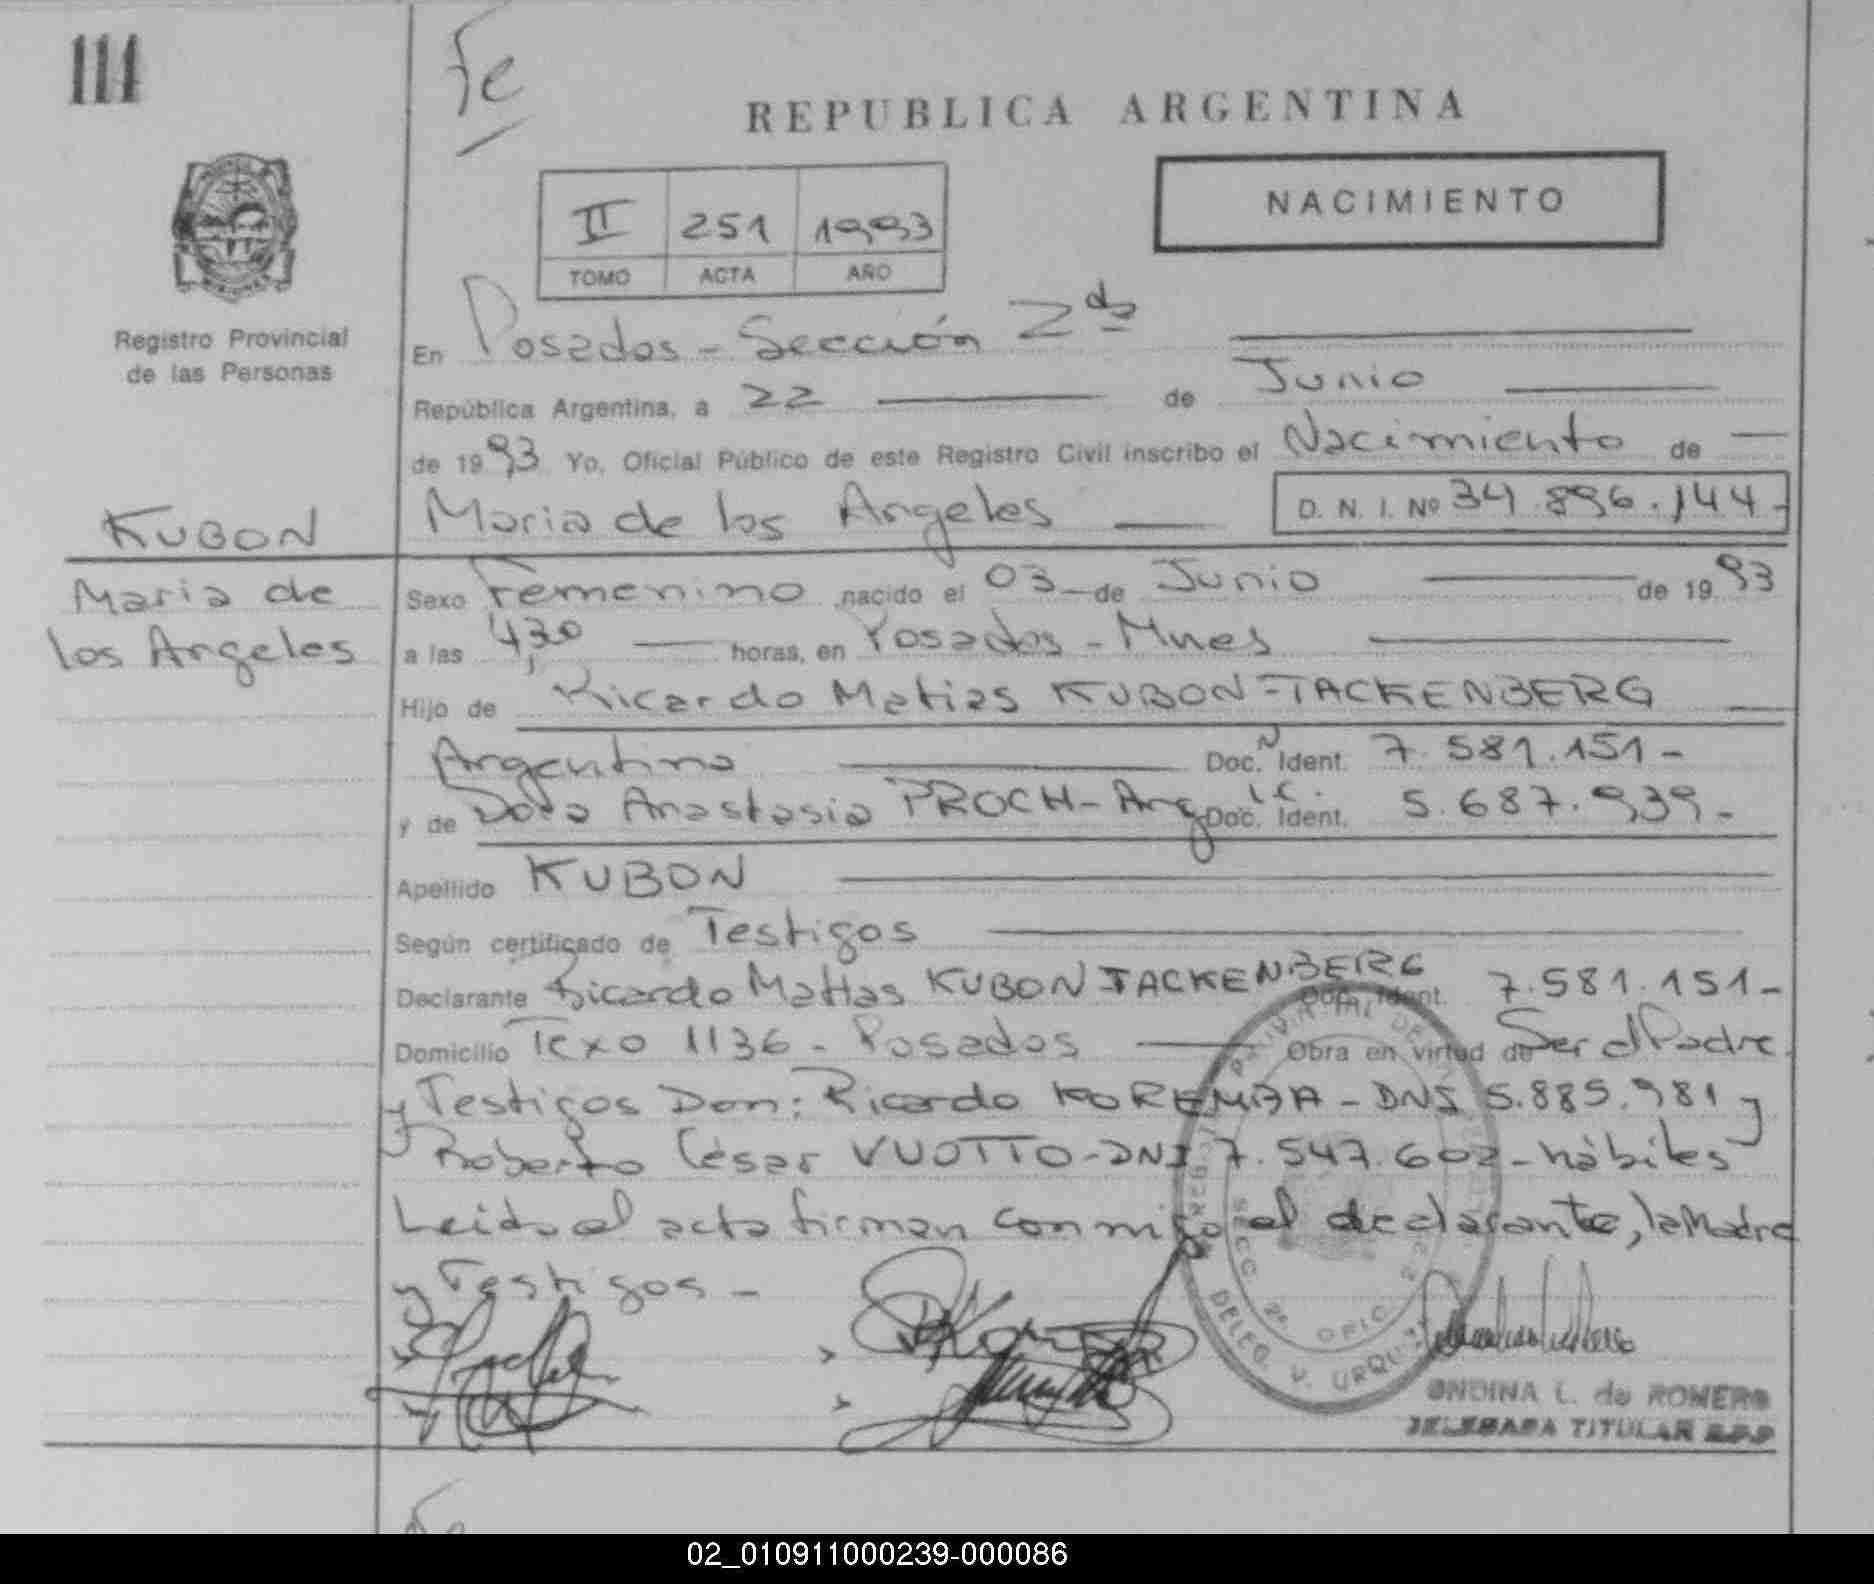 111
Fe
REPUBLICA ARGENTINA
NACIMIENTO
II 251 1993
TOMO ACTA AÑO
Registro Provincial
de las Personas
En Posadas - Sección 2da
República Argentina, a 22 de Junio
de 1993 Yo, Oficial Público de este Registro Civil inscribo el Nacimiento de
Maria de los Angeles D. N. I. Nº 34.896.144-
KUBON
Maria de
los Angeles
Sexo Femenino nacido el 03 de Junio de 1993
a las 4,30 horas, en Posadas - Mnes
Hijo de Ricardo Matias KUBON-TACKENBERG
Argentino Doc. Ident. 7.581.151-
y de Dora Anastasia PROCH- Arg Doc. Ident. L.C. 5.687.939-
Apellido KUBON
Según certificado de Testigos
Declarante Ricardo Matias KUBON TACKENBERG Doc. Ident. 7.581.151-
Domicilio Texo 1136 - Posadas Obra en virtud de Ser el Padre
y Testigos Don: Ricardo KOREMBA - DNI 5.885.981 y
Roberto César VUOTTO - DNI 7.547.602 - hábiles
Leida el acta firman conmigo el declarante, la Madre
y Testigos -
REGISTRO PROVINCIAL DE
SECC. 2ª OFIC.
DELEG. V. URQUIZA
ONDINA L. de ROMERO
DELEGADA TITULAR R.P.P
Fe
02_010911000239-000086